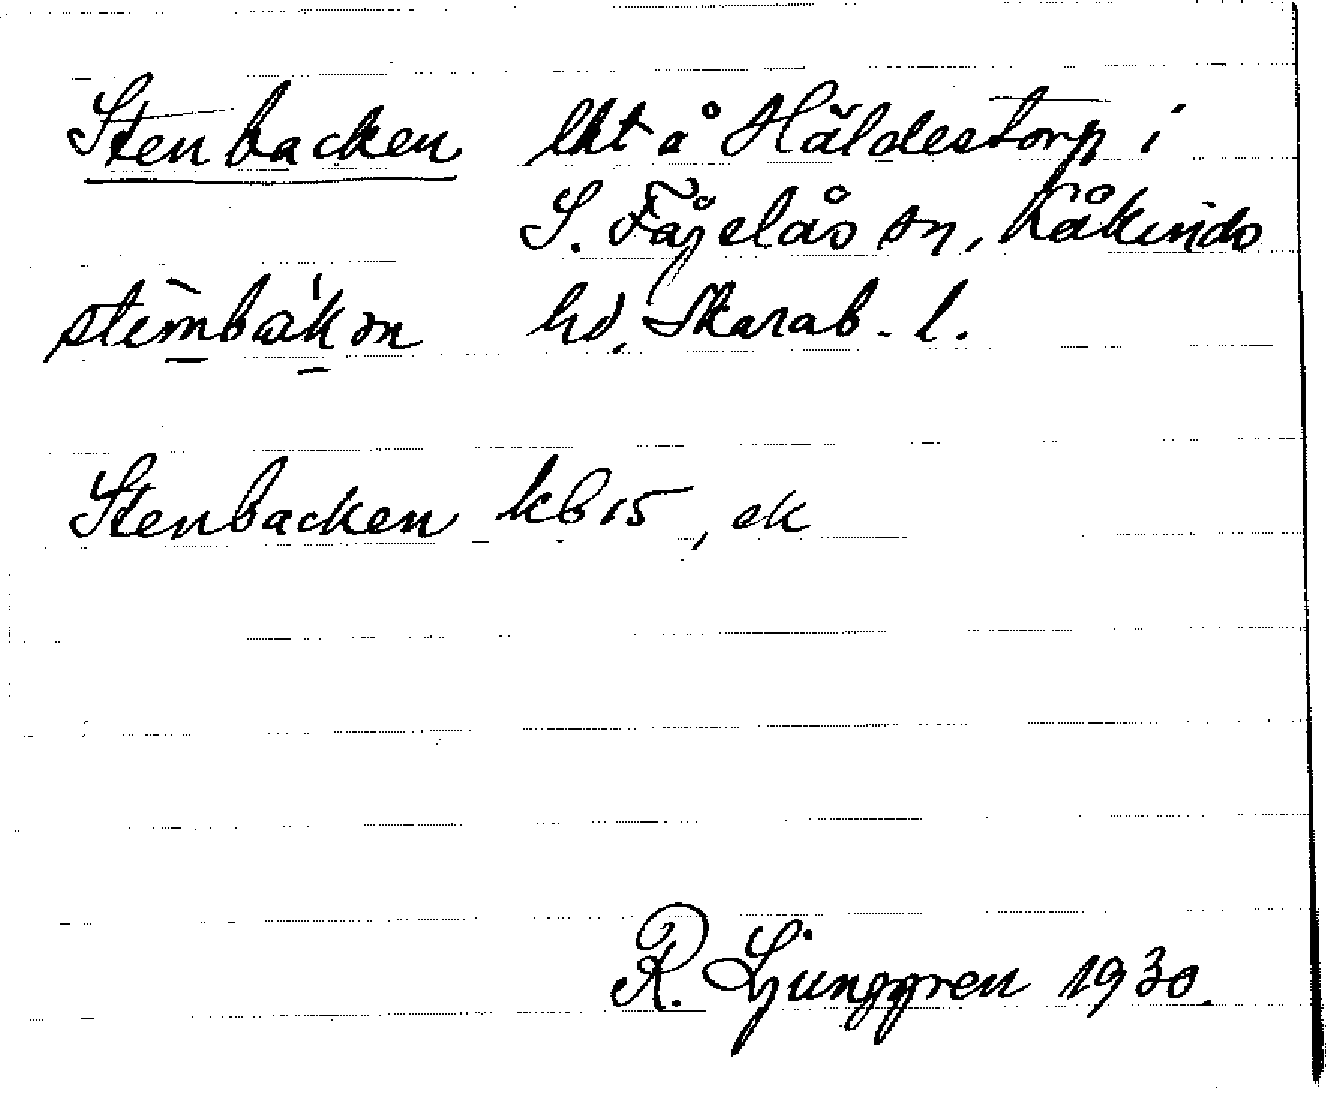 Stenbacken lht å Häldestorp i
S. Fågelås sn, Kåkinds
stèmbák ən hd, Skarab. l.
Stenbacken kb 15, ek
R. Ljunggren 1930.